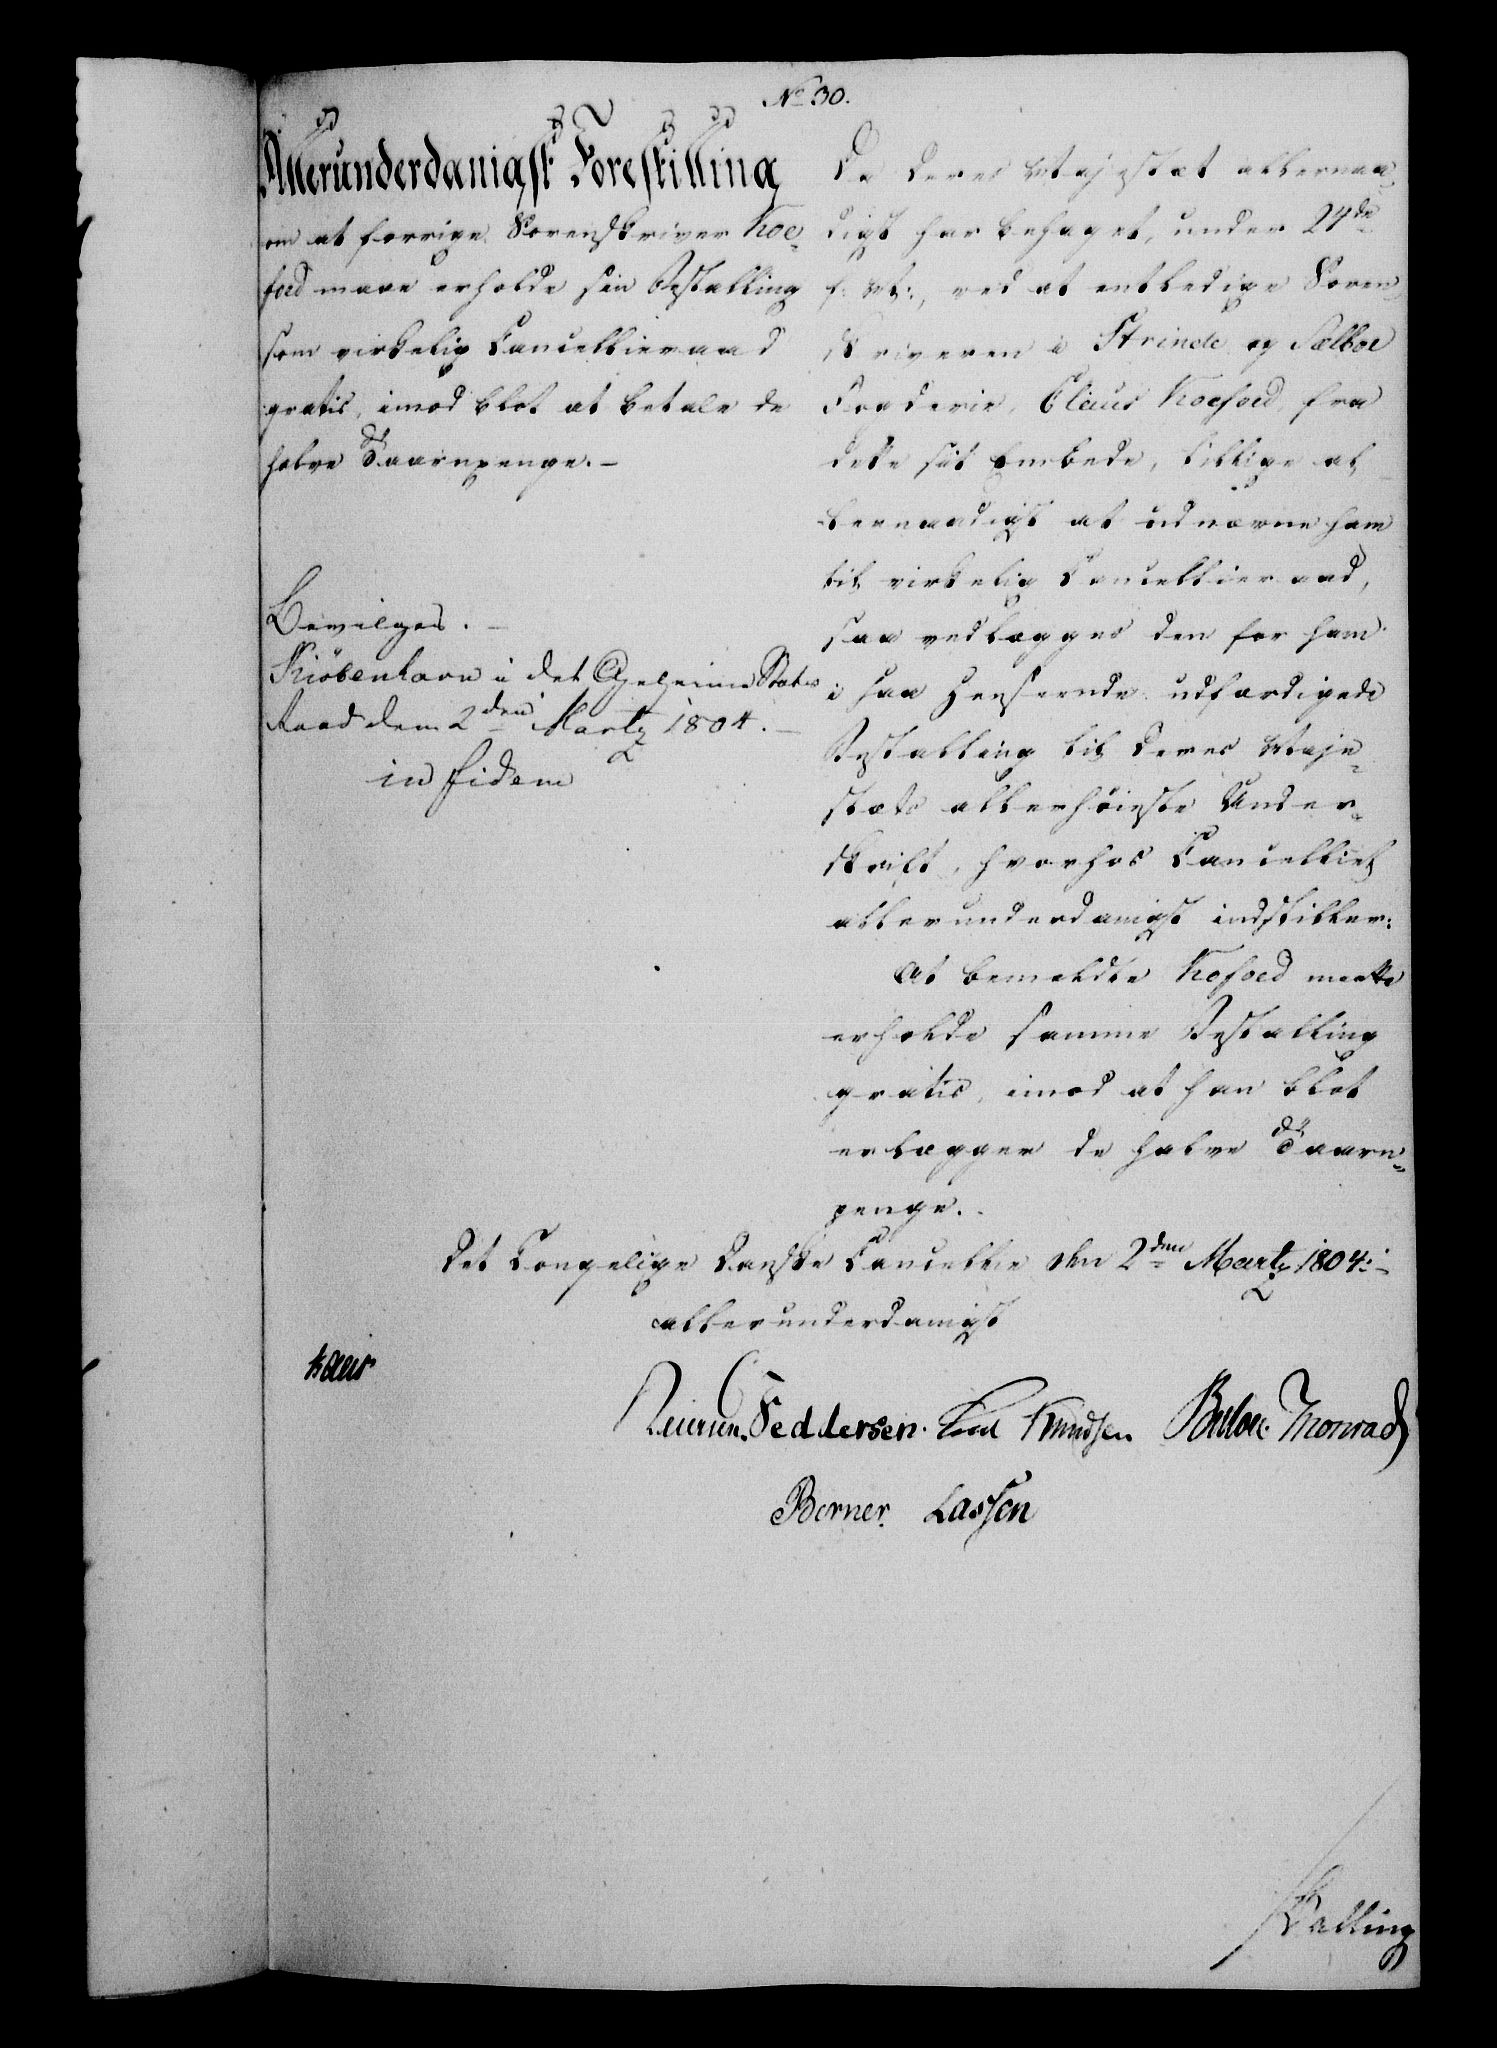 No 30.
Allerunderdanigst Forestilling
om at forrige Sorenskriver Koe-
foed maae erholde sin Bestalling
som virkelig Cancellieraad
gratis, imod blot at betale de
halve Taarnpenge.-
Bevilges. -
Kiöbenhavn i det Geheime Stats
Raad dem 2den Martz 1804. -
in fidem
Da Deres Majestæt allernaa-
digst har behaget, under 24de
f: M:, ved at entledige Soren-
skriveren i Strinde og Sælboe
Fogderie, Claus Koefoed, fra
dette sit Embede, tillige al-
lernaadigst at udnævne ham
til virkelig Cancellieraad,
saa vedlægges den for ham
i saa Henseende udfærdigede
Bestalling til Deres Maje-
stæts allerhöieste Under-
skrift, hvorhos Cancelliet
allerunderdanigst indstiller:
At bemeldte Kofoed maatte
erholde samme Bestalling
gratis, imod at han blot
erlægger de halve Taarn-
penge.
Det Kongelige Danske Cancellie den 2den Martz 1804.
allerunderdanigst
Kaas
Feddersen. Knudsen Bülow. Monrad
Berner. Lassen
Walling